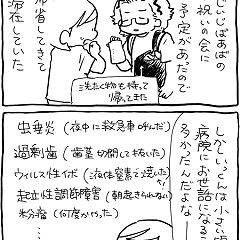 じいじばあばの
祝いの会に
予定があったので
帰省してきて
滞在していた
洗たく物も持って
帰ってきた
しかしいっくんは小さい頃
病院にお世話になる
多かったんだよなー
虫垂炎(夜中に救急車呼んだ)
過剰歯(歯茎切開して抜いた)
ウィルス性イボ(液体窒素で焼いた)
起立性調節障害(朝起きられない)
粉瘤(何度かやった)